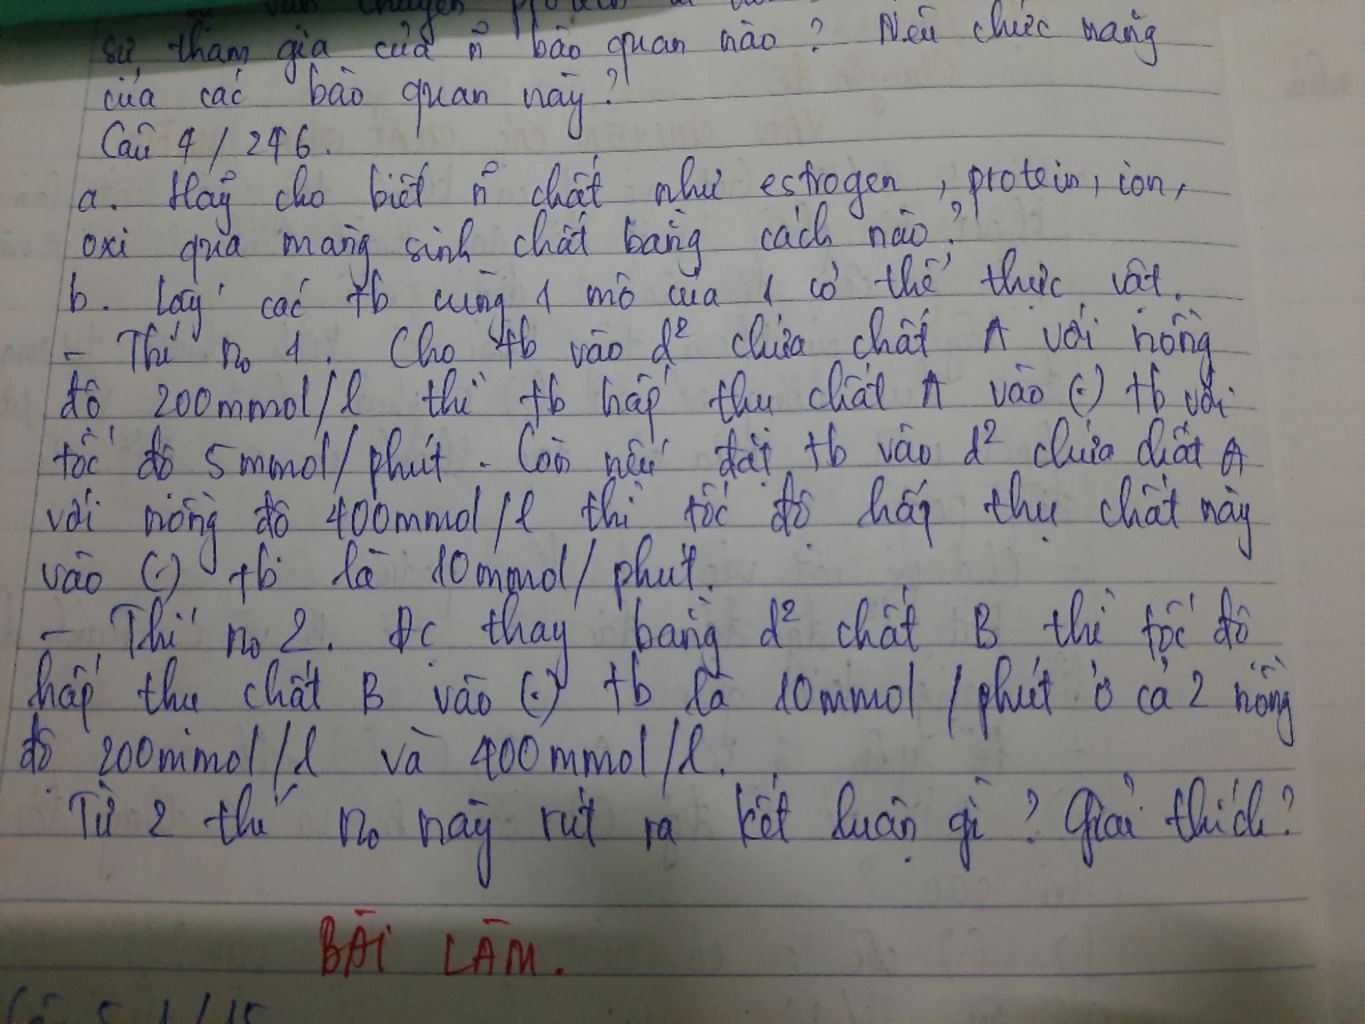 vận chuyển protein
sự tham gia của ñ bào quan nào? Nêu chức năng
của các bào quan này?
Câu 4/246.
a. Hãy cho biết ñ chất như estrogen, protein, ion,
oxi qua màng sinh chất bằng cách nào?
b. Lấy các tb cùng 1 mô của 1 cơ thể thực vật.
- Thí no 1. Cho tb vào d² chứa chất A với nồng
độ 200mmol/l thì tb hấp thu chất A vào (.) tb với
tốc độ 5mmol/phút. Còn nếu đặt tb vào d² chứa chất A
với nồng độ 400mmol/l thì tốc độ hấp thụ chất này
vào (.) tb là 10mmol/phút.
- Thí no 2. Đc thay bằng d² chất B thì tốc độ
hấp thu chất B vào (.) tb là 10mmol/phút ở cả 2 nồng
độ 200mmol/l và 400mmol/l.
Từ 2 thí no này rút ra kết luận gì? Giải thích?
BÀI LÀM.